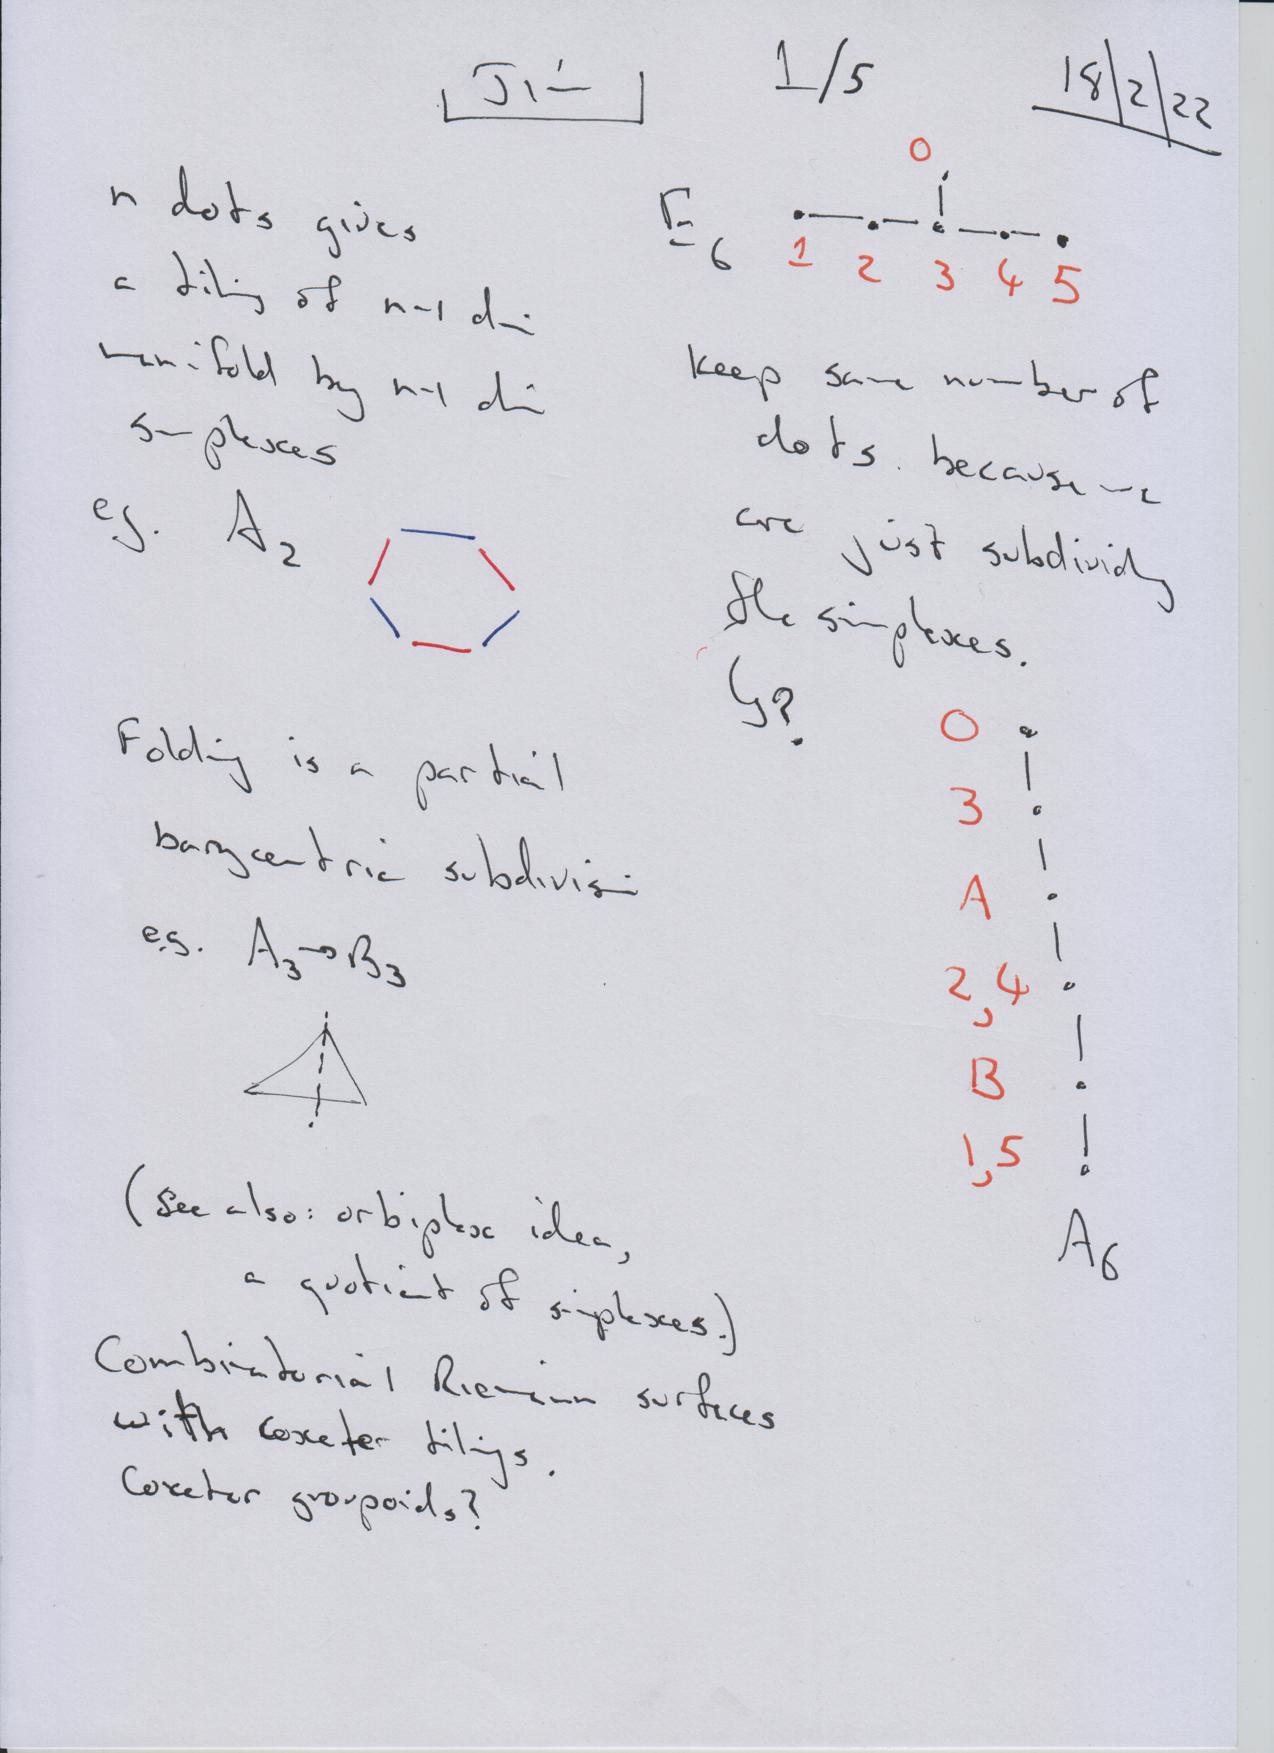 Jim
1/5
18/2/22
n dots gives
a tiling of n-1 dim
manifold by n-1 dim
simplexes
eg. A2
Folding is a partial
barycentric subdivision
e.g. A3 → B3
(see also: orbiplex idea,
a quotient of simplexes.)
Combinatorial Riemann surfaces
with coxeter tilings.
Coxeter groupoids?
E6
0
1 2 3 4 5
keep same number of
dots. because we
are just subdividing
the simplexes.
↳?
0
3
A
2,4
B
1,5
A6